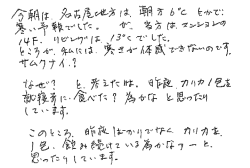 今朝は、名古屋地方は、朝方 6℃ とかで
寒い予報でした。 が、当方は、マンションの
14F. リビングは 13℃でした。
ところが、私には、寒さが体感できないのです。
サムクナイ？
なぜ？ と、考えたのは、昨晩 カリカ1包を
就寝前に食べた？ 為かな と思ったり
しています。
このところ、昨晩ばかりでなく カリカを
1包、飲み続けている為かなァー と
思ったりしています。